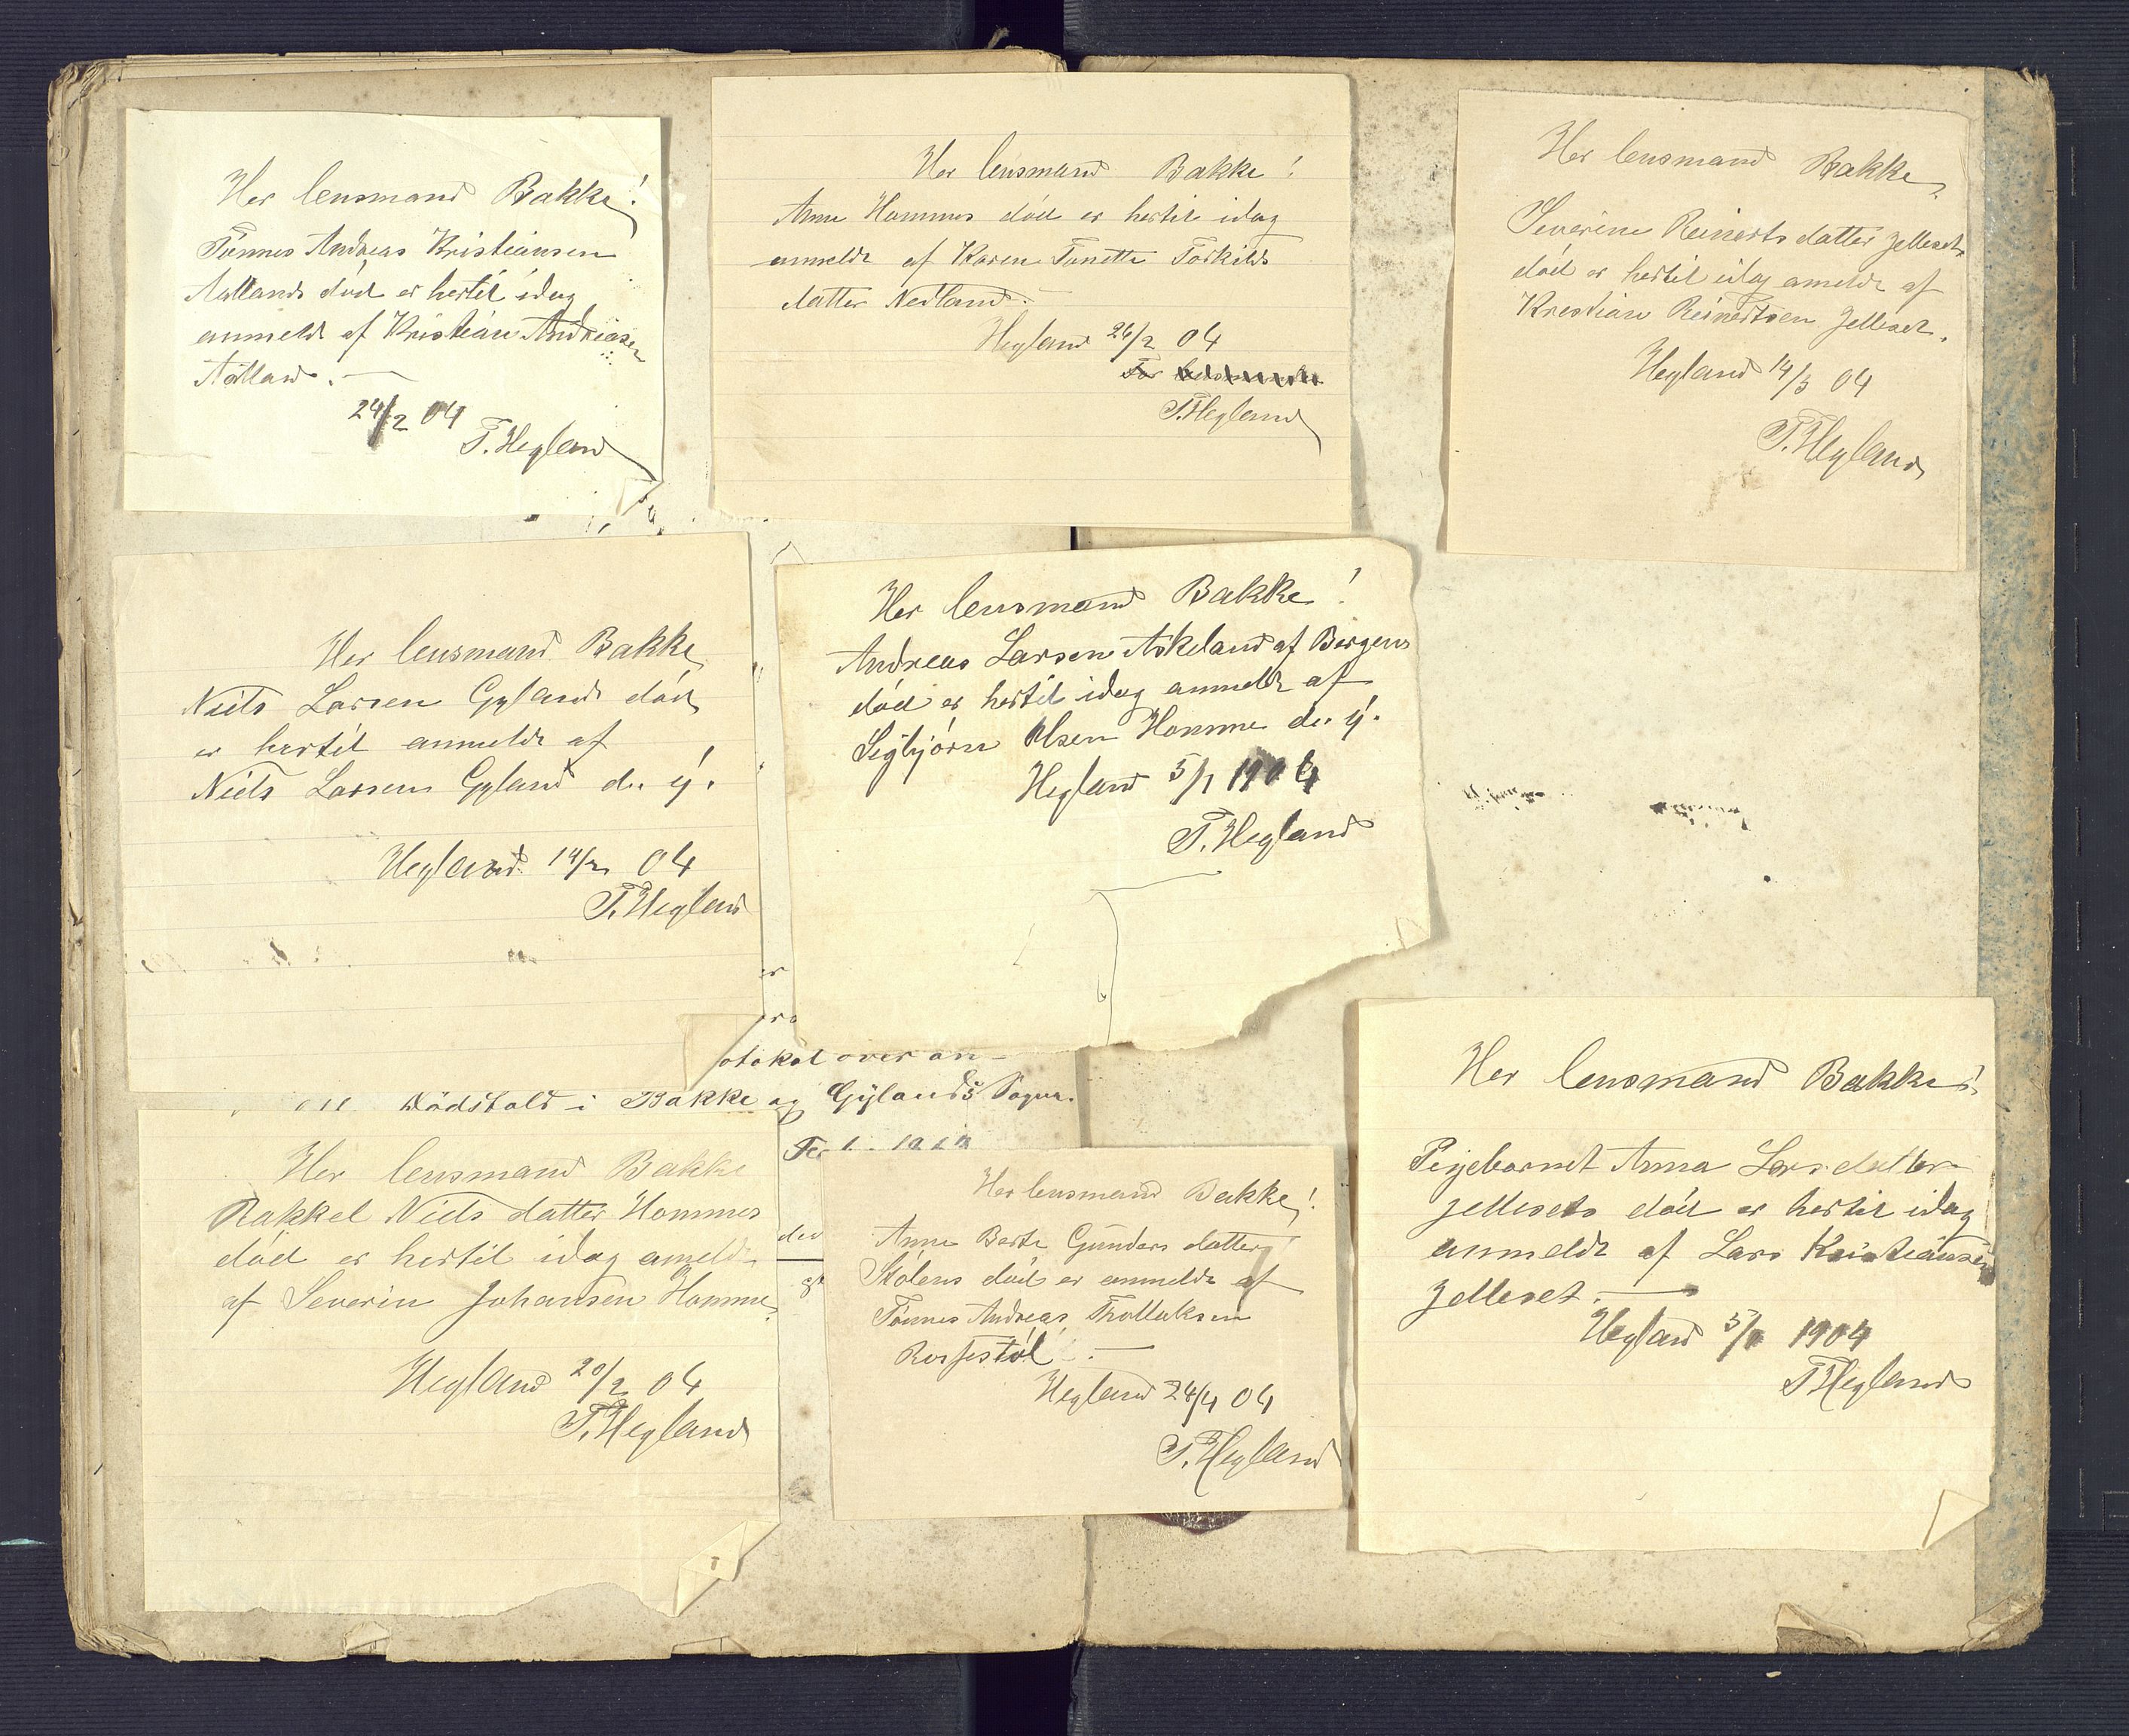 Her lensmand Bakke!
Tønnes Andreas Kristiansen
Aatlands död er hertil idag
anmeldt af Kristian Andreasen
Aatland. —
24/2 04
T. Hegland
Her lensmand Bakke!
Anne Hammes död er hertil idag
anmeldt af Karen Tonette Torkilds
datter Nedland. —
Hegland 26/2 04
For
T. Hegland
Her lensmand Bakke,
Severine Reinertsdatter Jellesets
död er hertil idag ameldt af
Krestian Reinertsen Jelleset.
Hegland 14/3 04
T. Hegland
Her lensmand Bakke
Niels Larsen Gylands död
er hertil anmeldt af
Niels Larsen Gyland d. y.
Hegland 14/2 04
T. Hegland
Her lensmand Bakke!
Andreas Larsen Askeland af Bergens
död er hertil idag anmeldt af
Sigbjörn Olsen Homme d. y.
Hegland 5/1 1904
T. Hegland
otokol over an-
Dödsfald i Bakke og Gylands Sogne.
Her lensmand Bakke
Rakkel Nielsdatter Hommes
död er hertil idag ameldt
af Severin Johansen Homme.
Hegland 20/2 04
T. Hegland
Her lensmand Bakke!
Anne Berte Gunders datter
Stölens död er anmeldt af
Tönnes Andreas Thollaksen
Hegland 24/4 04
T. Hegland
Her lensmand Bakke!
Pigebarnet Anna Larsdatter
Jellesets död er hertil idag
anmeldt af Lars Kristiansen
Jelleset. —
Hegland 5/1 1904
T. Hegland